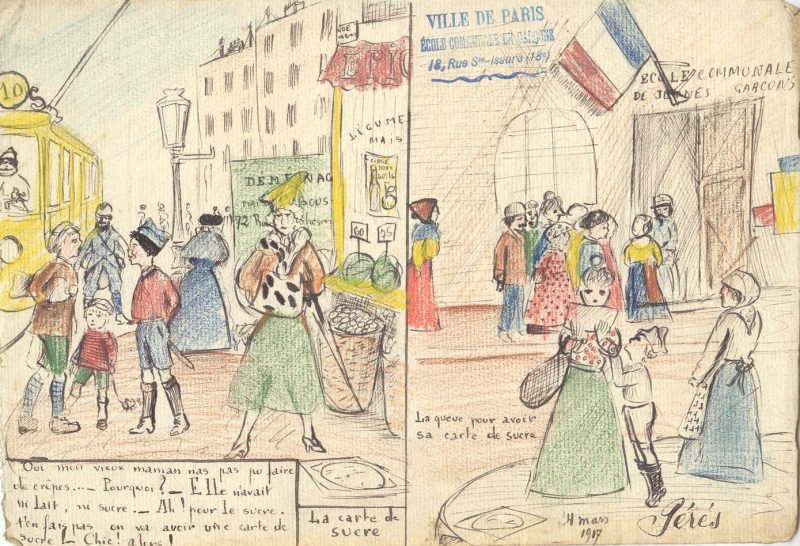 10
ÉPIC
LÉGUME
MAIS
DÉMÉNAG
60
25
Oui mon vieux maman n'as pas pu faire
de crêpes... _ Pourquoi? _ Elle n'avait
ni lait, ni sucre. _ Ah! pour le sucre.
t'en fais pas on va avoir une carte de
sucre! _ Chic! alors!
La carte de
sucre
VILLE DE PARIS
ÉCOLE COMMUNALE DE GARÇONS
18, Rue Ste-Isaure (18e)
ECOLE COMMUNALE
DE JEUNES GARCONS
La queue pour avoir
sa carte de sucre
mars
1917
Gérés